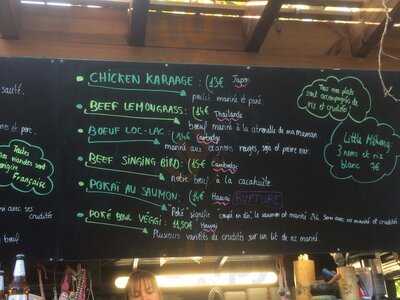 sauté.
et porc.
Toutes
nos viandes sont
d'origine
Française
avec ses
crudités
bœuf
• CHICKEN KARAAGE : 13€ Japon
poulet mariné et pané
• BEEF LEMONGRASS : 15€ Thaïlande
bœuf mariné à la citronelle de ma maman
• BOEUF LOC-LAC : 14€ Cambodge
mariné aux oignons rouges, soja et poivre noir
• BEEF SINGING BIRD : 15€ Cambodge
notre bœuf à la cacahuète
• POKAI AU SAUMON : Hawaï RUPTURE
"Poké" signifie coupé en dés, le saumon et mariné servi avec riz mariné et crudités
• POKÉ BOWL VÉGGI : 11,50€ Hawaï
Plusieurs variétés de crudités sur un lit de riz mariné
Tous nos plats
sont accompagnés de
riz et crudités
Little Mékong :
3 nems et riz
blanc 7€